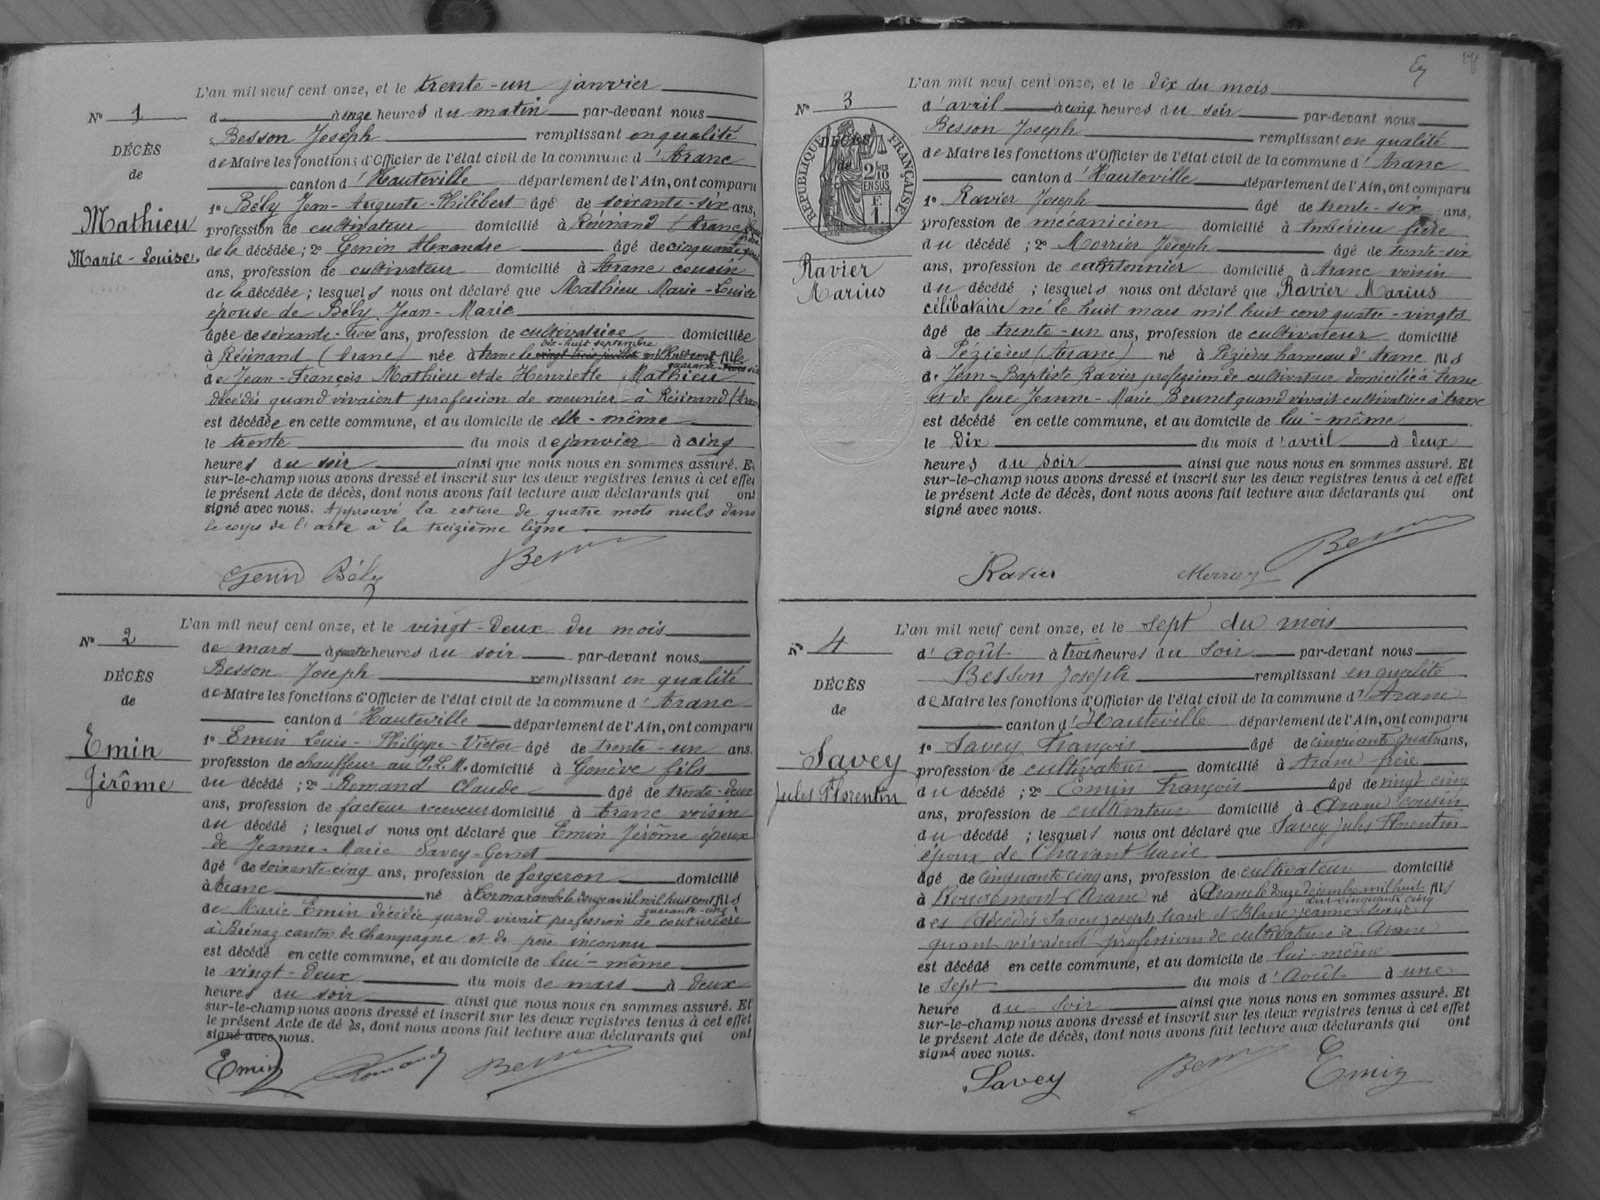 L'an mil neuf cent onze, et le trente-un janvier
N° 1
à onze heures du matin par-devant nous
Besson Joseph remplissant en qualité
DÉCÈS
de
de Maire les fonctions d'Officier de l'état civil de la commune d'Aranc
canton d'Hauteville département de l'Ain, ont comparu
Mathieu
Marie-Louise
1° Bély Jean-Auguste-Philibert âgé de soixante-six ans,
profession de cultivateur domicilié à Résinand (Aranc)
de la décédée; 2° Genin Alexandre âgé de cinquante
ans, profession de cultivateur domicilié à Aranc cousin
de la décédée; lesquels nous ont déclaré que Mathieu Marie-Louise
épouse de Bély Jean-Marie
âgée de soixante-trois ans, profession de cultivatrice domiciliée
dix-huit septembre
à Résinand (Aranc) née à Aranc le vingt trois juillet mil huit cent fille
quarante-sept
de Jean-François Mathieu et de Henriette Mathieu
décédés quand vivaient profession de meunier à Résinand (Aranc)
est décédée en cette commune, et au domicile de elle-même
le trente du mois de janvier à cinq
heures du soir ainsi que nous nous en sommes assuré. Et
sur-le-champ nous avons dressé et inscrit sur les deux registres tenus à cet effet
le présent Acte de décès, dont nous avons fait lecture aux déclarants qui ont
signé avec nous. Approuvé la rature de quatre mots nuls dans
le corps de l'acte à la treizième ligne
Genin Bély Besson
L'an mil neuf cent onze, et le vingt-deux du mois
N° 2
de mars à quatre heures du soir par-devant nous
Besson Joseph remplissant en qualité
DÉCÈS
de
de Maire les fonctions d'Officier de l'état civil de la commune d'Aranc
canton d'Hauteville département de l'Ain, ont comparu
Emin
Jérôme
1° Emin Louis-Philippe-Victor âgé de trente-un ans.
profession de chauffeur au P.L.M. domicilié à Genève fils
du décédé; 2° Romand Claude âgé de trente-deux
ans, profession de facteur receveur domicilié à Aranc voisin
du décédé; lesquels nous ont déclaré que Emin Jérôme époux
de Jeanne-Marie Savey-Genet
âgé de soixante-cinq ans, profession de forgeron domicilié
à Aranc né à Cormaranche le douze avril mil huit cent fils
quarante-cinq
de Marie Emin décédée quand vivait profession de couturière
à Brénaz canton de Champagne et de père inconnu
est décédé en cette commune, et au domicile de lui-même
le vingt-deux du mois de mars à deux
heures du soir ainsi que nous nous en sommes assuré. Et
sur-le-champ nous avons dressé et inscrit sur les deux registres tenus à cet effet
le présent Acte de décès, dont nous avons fait lecture aux déclarants qui ont
signé avec nous.
Emin Romand Besson
L'an mil neuf cent onze, et le dix du mois
N° 3
d'avril à cinq heures du soir par-devant nous
Besson Joseph remplissant en qualité
DÉCÈS
de
RÉPUBLIQUE FRANÇAISE
2/10 EN SUS
F. 1.
de Maire les fonctions d'Officier de l'état civil de la commune d'Aranc
canton d'Hauteville département de l'Ain, ont comparu
1° Ravier Joseph âgé de trente-six ans,
profession de mécanicien domicilié à Ambérieu frère
du décédé; 2° Merrier Joseph âgé de trente-six
ans, profession de cantonnier domicilié à Aranc voisin
Ravier
Marius
du décédé; lesquels nous ont déclaré que Ravier Marius
célibataire né le huit mars mil huit cent quatre-vingts
âgé de trente-un ans, profession de cultivateur domicilié
à Pézières (Aranc) né à Pézières hameau d'Aranc fils
de Jean-Baptiste Ravier profession de cultivateur domicilié à Aranc
et de feue Jeanne-Marie Brunet quand vivait cultivatrice à Aranc
est décédé en cette commune, et au domicile de lui-même
le dix du mois d'avril à deux
heures du soir ainsi que nous nous en sommes assuré. Et
sur-le-champ nous avons dressé et inscrit sur les deux registres tenus à cet effet
le présent Acte de décès, dont nous avons fait lecture aux déclarants qui ont
signé avec nous.
Ravier Besson
L'an mil neuf cent onze, et le sept du mois
N° 4
d'août à trois heures du soir par-devant nous
Besson Joseph remplissant en qualité
DÉCÈS
de
de Maire les fonctions d'Officier de l'état civil de la commune d'Aranc
canton d'Hauteville département de l'Ain, ont comparu
Savey
Jules Florentin
1° Savey François âgé de cinquante quatre ans,
profession de cultivateur domicilié à Aranc frère
du décédé; 2° Emin François âgé de vingt cinq
ans, profession de cultivateur domicilié à Aranc cousin
du décédé; lesquels nous ont déclaré que Savey Jules Florentin
époux de Chavant Marie
âgé de cinquante cinq ans, profession de cultivateur domicilié
à Rougemont (Aranc) né à Aranc le douze décembre mil huit fils
cent cinquante cinq
des décédés Savey Joseph Marie et Blanc Jeanne Louise
quant vivaient professions de cultivateurs à Aranc
est décédé en cette commune, et au domicile de lui-même
le sept du mois d'Août à une
heure du soir ainsi que nous nous en sommes assuré. Et
sur-le-champ nous avons dressé et inscrit sur les deux registres tenus à cet effet
le présent Acte de décès, dont nous avons fait lecture aux déclarants qui ont
signé avec nous.
Savey Besson Emin